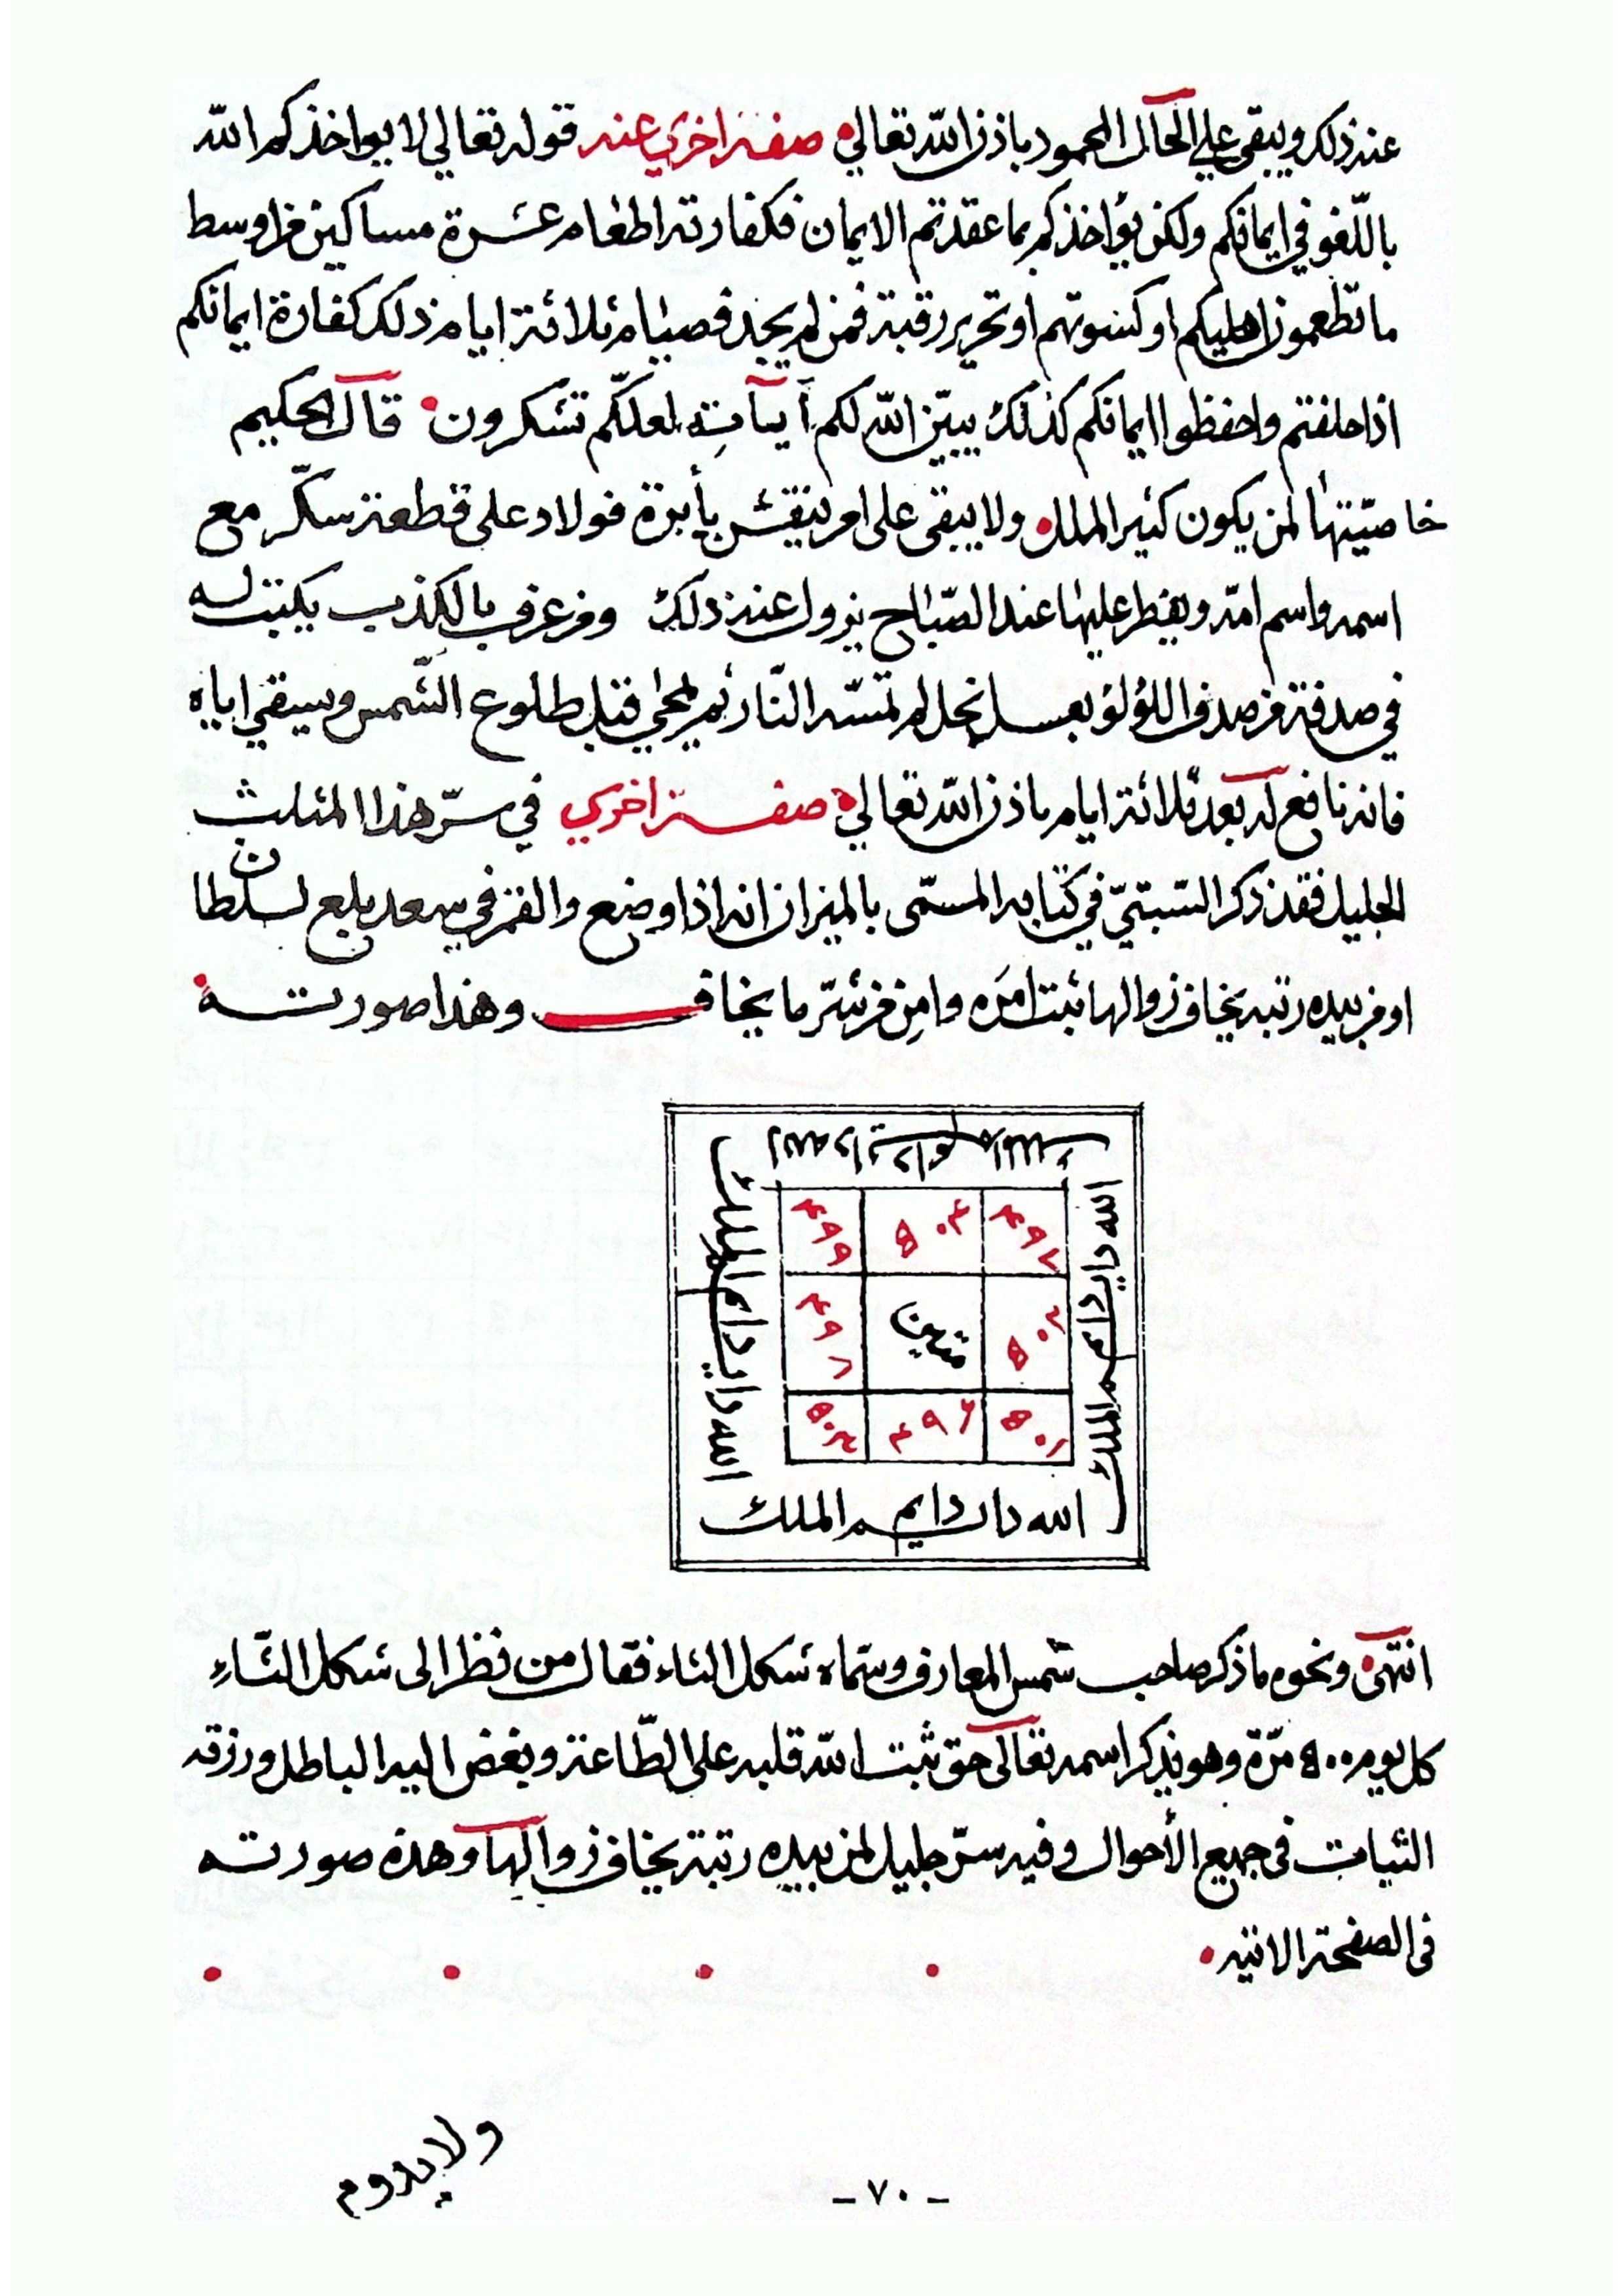 عند ذلك ويبقى علي الحال المحمود باذن الله تعالي صفة اخري عند قوله تعالي لا يواخذكم الله
باللّغو في ايمانكم ولكن يؤاخذكم بما عقدتم الايمان فكفارته اطعام عشرة مساكين من اوسط
ما تطعمون اهليكم او كسوتهم او تحرير رقبة فمن لم يجد فصيام ثلاثة ايام ذلك كفارة ايمانكم
اذا حلفتم واحفظوا ايمانكم كذلك يبيّن الله لكم آياته لعلكم تشكرون قال الحكيم
خاصيّتها لمن يكون كثير الملل ولا يبقى على امر ينقش بأبرة فولاد على قطعة سكّر مع
اسمه واسم امّه ويفطر عليها عند الصّباح يزول عنه ذلك ومن عرف بالكذب يكتب له
في صدفة من صدف اللؤلؤ بعسل نحل لم تمسّه النّار ثم يمحي قبل طلوع الشّمس ويسقي اياه
فانه نافع له بعد ثلاثة ايام باذن الله تعالي صفة اخري في سرّ هذا المثلث
الجليل فقد ذكر السّبتيّ في كتابه المسمّى بالميزان انه اذا وضع والقمر في سعد بلع لسلطان
او من بيده رتبه يخاف زوالها ثبت امره وامن من شرّ ما يخاف وهذا صورته
٤٩٩ ٥٠٣ ٤٩٧
٤٩٨ ٥٠٢
٥٠٤ ٤٩٦ ٥٠١
الله دايم الملك
انتهى ونحوه ما ذكر صاحب شمس المعارف وسمّاه شكل الثاء فقال من نظر الى شكل الثّاء
كل يوم ٥٠٠ مرّة وهو يذكر اسمه تعالى حق ثبت الله قلبه على الطّاعة وبغض اليه الباطل ورزقه
الثبات في جميع الأحوال وفيه سرّ جليل لمن بيده رتبة يخاف زوالها وهذه صورته
فى الصفحة الاتيه
ولا يدوم
- ٧٠ -